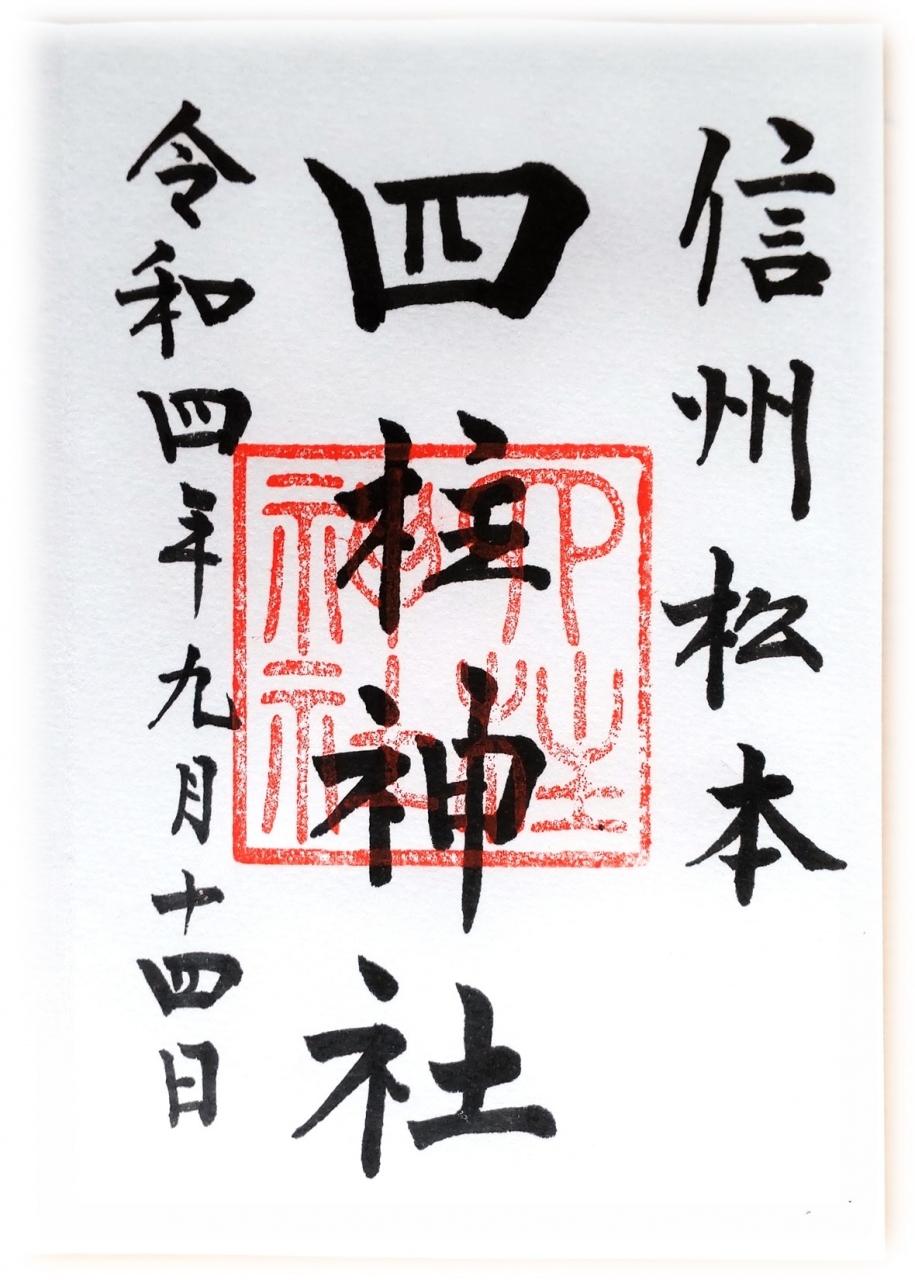 信州松本
四柱神社
四柱神社
令和四年九月十四日